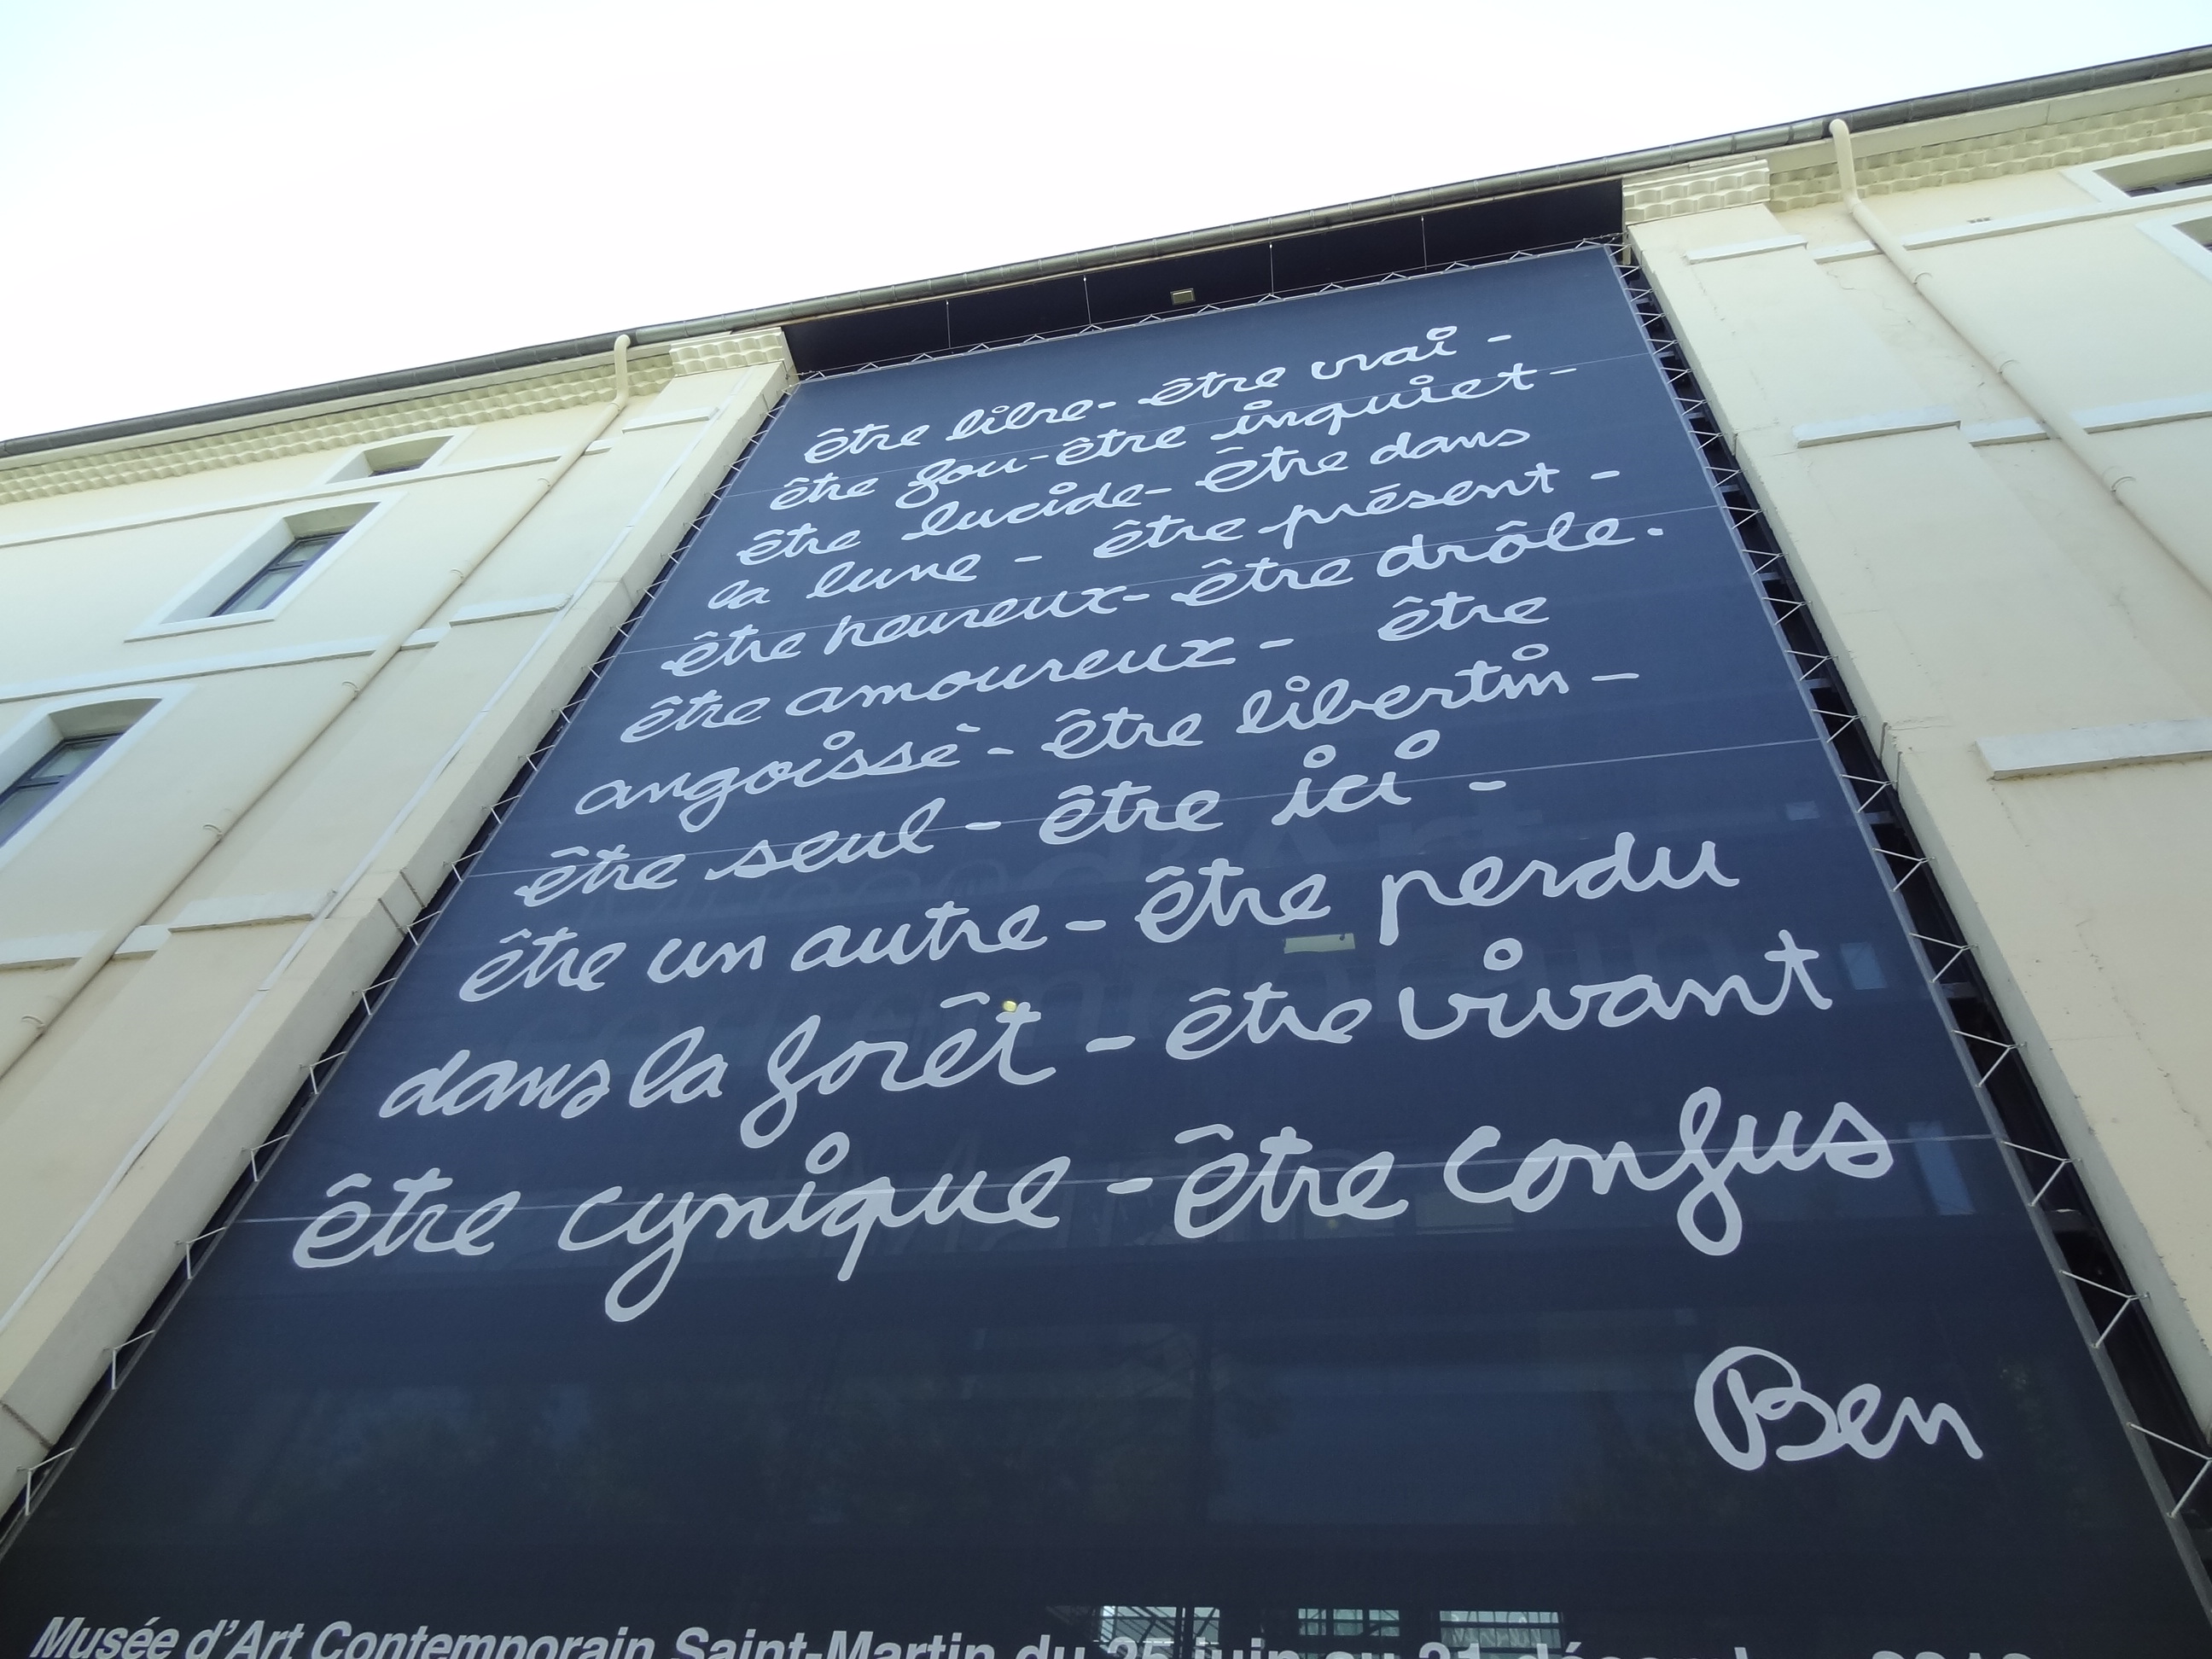 être libre - être vrai -
être fou - être inquiet -
être lucide - être dans
la lune - être présent -
être heureux - être drôle.
être amoureux - être
angoissè - être libertin -
être seul - être ici -
être un autre - être perdu
dans la forêt - être vivant
être cynique - être confus
Ben
Musée d'Art Contemporain Saint-Martin du 25 juin au 31 décembre